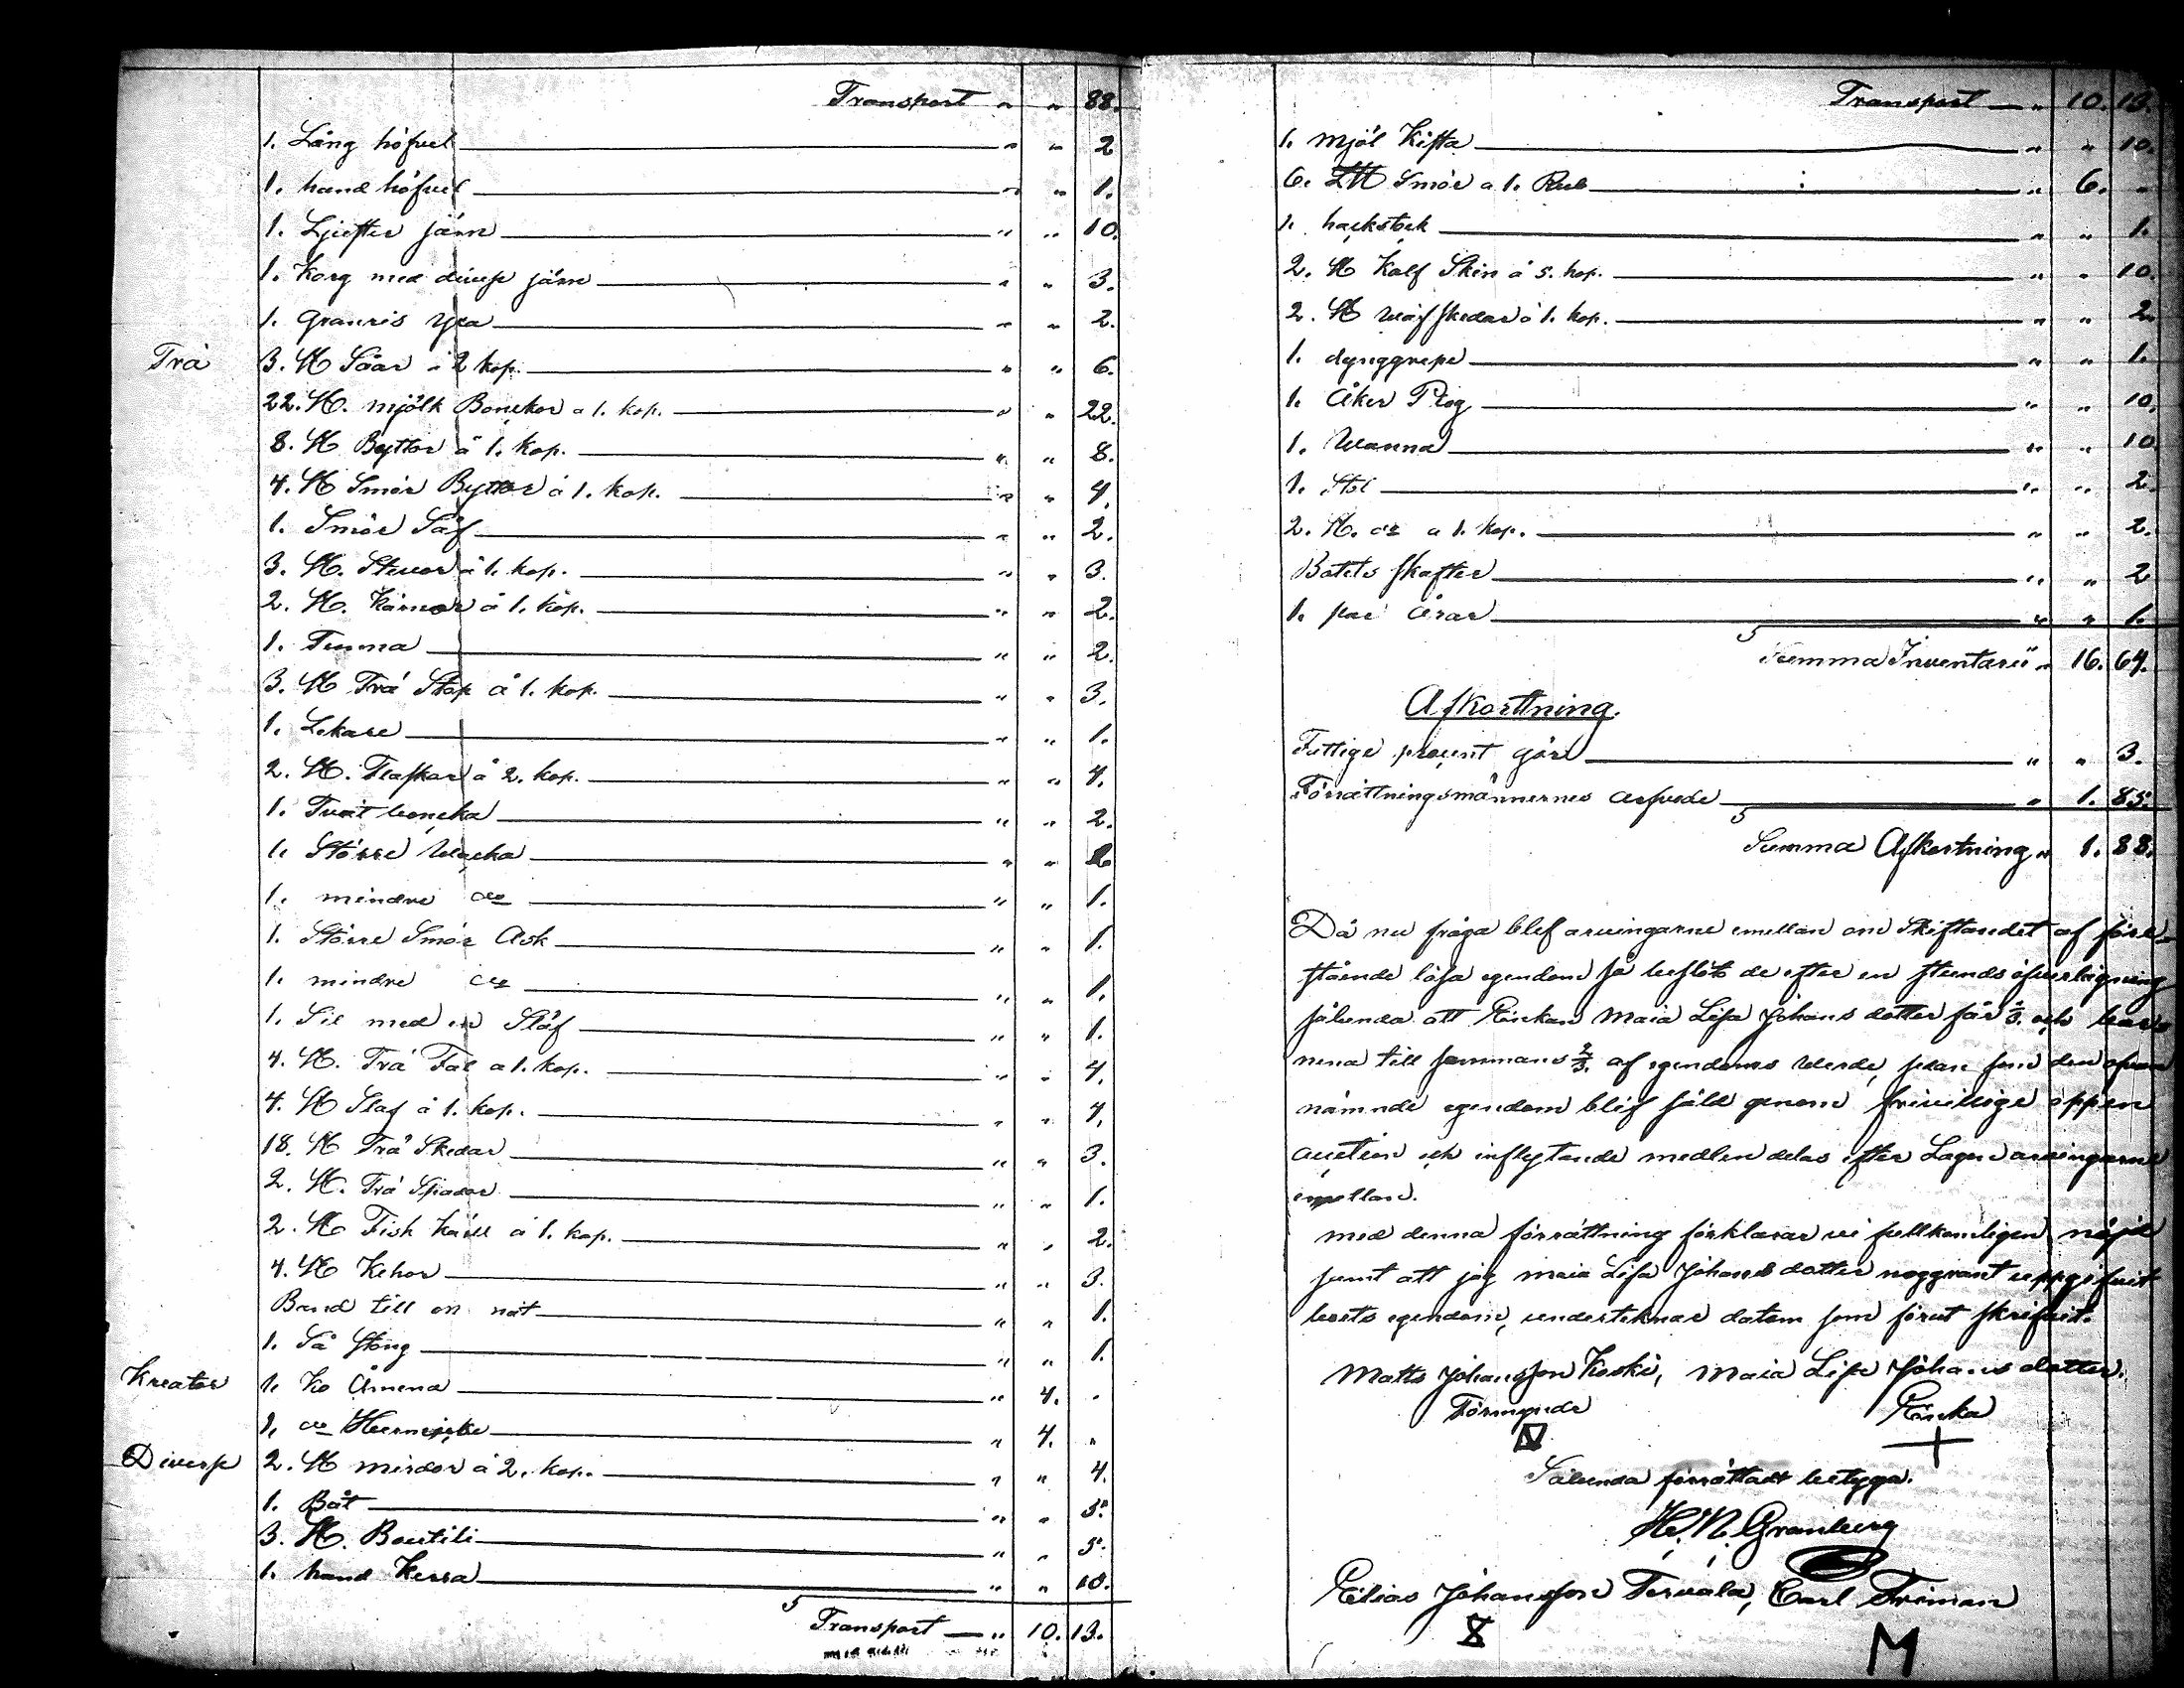 Transport — " " 88.
1. Lång höfvel " " 2
1. hand höfvel " " 1.
1. Ljuster järn " " 10.
1. Korg med diverse järn " " 3.
1. Granris yxa " " 2.
Trä 3. St Såar à 2 kop. " " 6.
22. St. mjölk Bonckor a 1. kop. " " 22.
8. St Byttor à 1. kop. " " 8.
4. St Smör Byttor à 1. kop. " " 4.
1. Smör Såf " " 2.
3. St. Stevor à 1. kop. " " 3.
2. St. Kärnor à 1. kop. " " 2.
1. Tunna " " 2.
3. St Trä Stop à 1. kop. " " 3.
1. Lekare " " 1.
2. St. Flaskar à 2. kop. " " 4.
1. Tvät boncka " " 2.
1. Större Wacka " "
1. mindre do " " 1.
1. Större Smör Ask " " 1.
1. mindre do " " 1.
1. Sil med en Slåf " " 1.
4. St. Trä Fat a 1. kop. " " 4.
4. St Slaf à 1. kop. " " 4.
18. St Trä Skedar " " 3.
2. St. Trä Spadar " " 1.
2. St Fisk käril à 1. kop. " " 2.
4. St Kehor " " 3.
Band till en nät " " 1.
1. Så stong " " 1.
Kreator 1. Ko Ämena " 4. "
1. do " 4. "
Diverse 2. St mirdor à 2. kop. " " 4.
1. Båt " " 5.
3. St. Boutili " " 5.
1. hand Kerra " " 10.
Transport — " 10. 13.
Transport — " 10. 13.
1. Mjöl Kista " " 10.
6. L℔ Smör a 1. Rub " 6. "
1. hackstock " " 1.
2. St Kalf Skin à 5. kop. " " 10.
2. St Wäfskedar à 1. kop. " " 2.
1. dynggrepe " " 1.
1. Åker Plog " " 10.
1. Wanna " " 10
1. Stol " " 2.
2. St. do a 1. kop. " " 2.
Båtets skafter " " 2
1. par Årar " " 1.
Summa Inventarii " 16. 64.
Afkortning.
Fattige procent gör " " 3.
Förrättningsmännernes arfvode " 1. 85.
Summa Afkortning " 1. 88.
Då nu fråga blef arvingarne emellan om Skiftandet af före-
stående lösa egendom så beslöt de efter en stunds öfverlägning
sålunda att Enckan Maia Lisa Johans dotter får 1/3. och bar-
nena till sammans 2/3. af egendoms werde, sedan som den ofvan
nämnde egendom blef såld genom frivillige öppen
auction och inflytande medlen delas efter Lagen arvingarne
emellan.
med denna förrättning förklarar vi fullkomligen nöjd
samt att jag maia Lisa Johans dotter noggrant uppgifvit
boets egendom, underteknar datom som förut skrifvit.
Matts Johansson Koski, Maia Lisa Johans dotter.
Förmynde Encka
Sålunda förrättadt betyga.
H. N. Granberg
Elias Johansson Tervala, Carl Friman
M